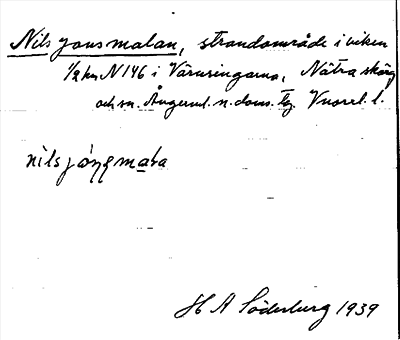 Nils jonsmalan, strandområde i viken
1/2 km N 146 i Värnsingarna, Nätra skärg
och sn. Ångerml. n. doms. tg. Vuorel. l.
nils jóṇṣmala
H A Söderberg 1939